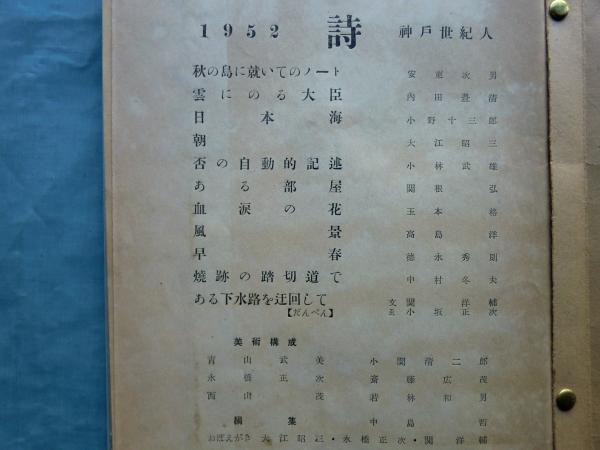 1952 詩 神戸世紀人
秋の島に就いてのノート 安東次男
雲にのる大臣 内田豊清
日本海 小野十三郎
朝 大江昭三
否の自動的記述 小林武雄
ある部屋 関根弘
血涙の花 玉本格
風景 高島洋
早春 徳永秀則
燒跡の踏切道で 中村冬夫
ある下水路を迂回して 文 関洋輔
【だんぺん】 え 小坂正次
美術構成
青山武美 小関清二郎
永橋正次 斎藤広茂
西山茂 若林和男
編集 中島哲
おぼえがき 大江昭三・永橋正次・関洋輔